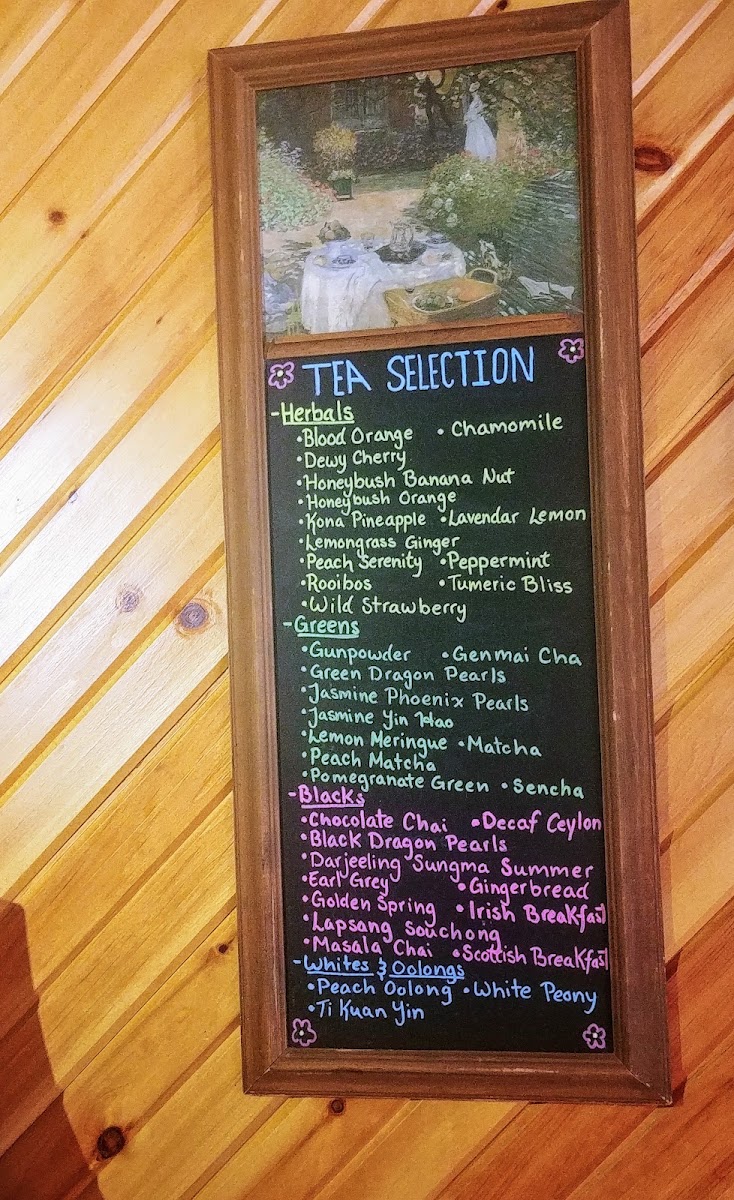 TEA SELECTION
-Herbals
•Blood Orange •Chamomile
•Dewy Cherry
•Honeybush Banana Nut
•Honeybush Orange
•Kona Pineapple •Lavendar Lemon
•Lemongrass Ginger
•Peach Serenity •Peppermint
•Rooibos •Tumeric Bliss
•Wild Strawberry
-Greens
•Gunpowder •Genmai Cha
•Green Dragon Pearls
•Jasmine Phoenix Pearls
•Jasmine Yin Hao
•Lemon Meringue •Matcha
•Peach Matcha
•Pomegranate Green •Sencha
-Blacks
•Chocolate Chai •Decaf Ceylon
•Black Dragon Pearls
•Darjeeling Sungma Summer
•Earl Grey •Gingerbread
•Golden Spring •Irish Breakfast
•Lapsang Souchong
•Masala Chai •Scottish Breakfast
-Whites & Oolongs
•Peach Oolong •White Peony
•Ti Kuan Yin